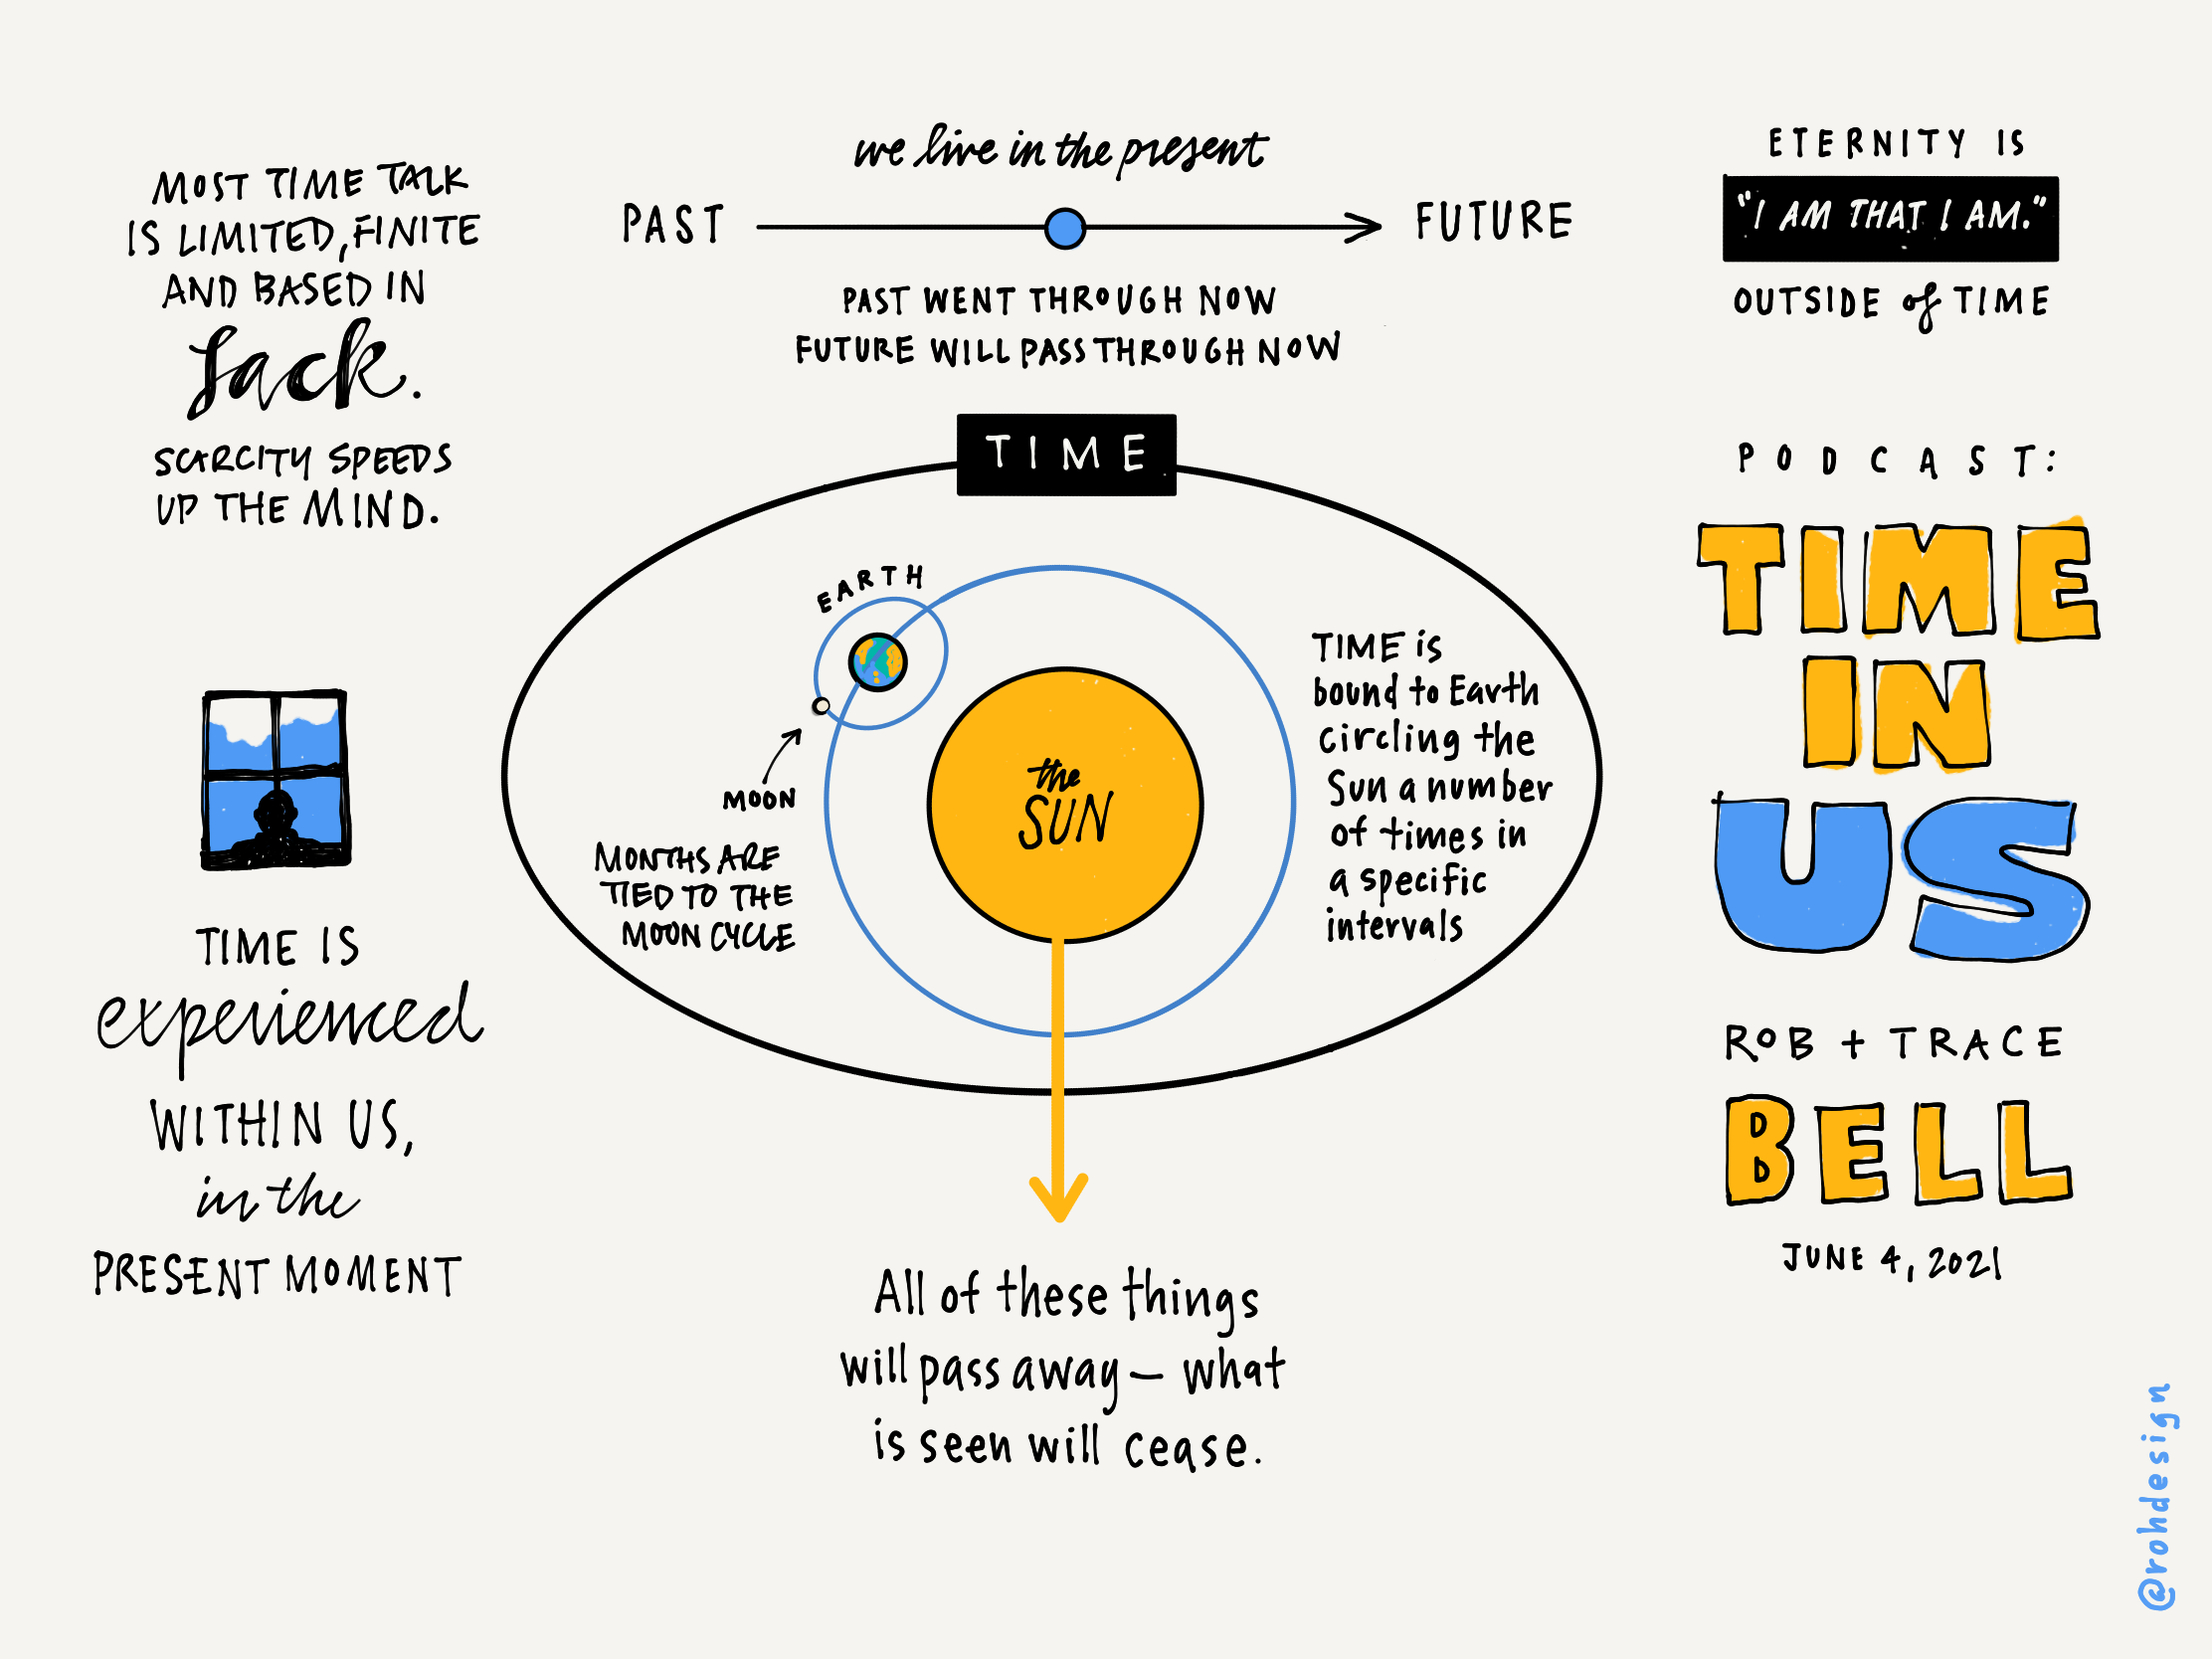 MOST TIME TALK
IS LIMITED, FINITE
AND BASED IN
Lack.
SCARCITY SPEEDS
UP THE MIND.
TIME IS
experienced
WITHIN US,
in the
PRESENT MOMENT
we live in the present
PAST
FUTURE
PAST WENT THROUGH NOW
FUTURE WILL PASS THROUGH NOW
TIME
EARTH
MOON
MONTHS ARE
TIED TO THE
MOON CYCLE
the
SUN
TIME is
bound to Earth
circling the
Sun a number
of times in
a specific
intervals
All of these things
will pass away— what
is seen will cease.
ETERNITY IS
"I AM THAT I AM."
OUTSIDE of TIME
PODCAST:
TIME
IN
US
ROB + TRACE
BELL
JUNE 4, 2021
@rohdesign